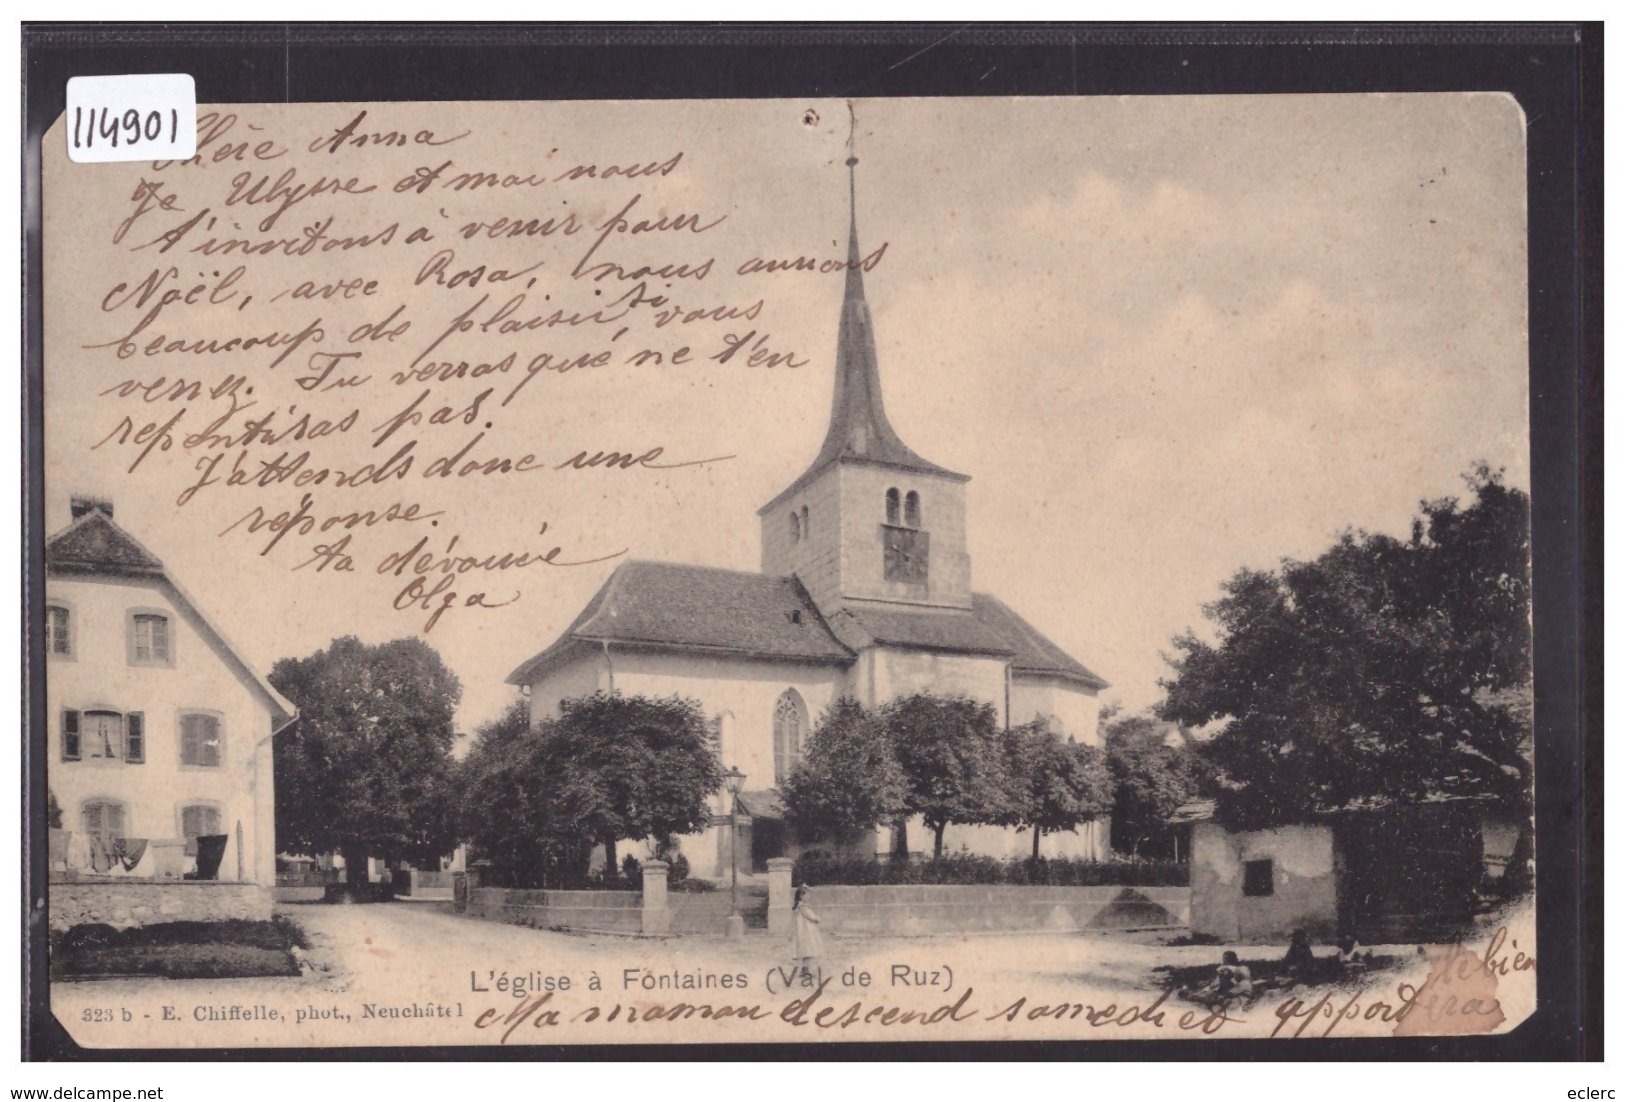 114901
Chère Anna
Je Ulysse et moi nous
t'invitons à venir pour
Noël, avec Rosa, nous aurions
beaucoup de plaisir si vous
venez. Tu verras que ne t'en
repentiras pas.
J'attends donc une
réponse.
ta dévouée
Olga
L'église à Fontaines (Val de Ruz)
323 b - E. Chiffelle, phot., Neuchâtel
Ma maman descend samedi et apportera
le bien
www.delcampe.net
eclerc